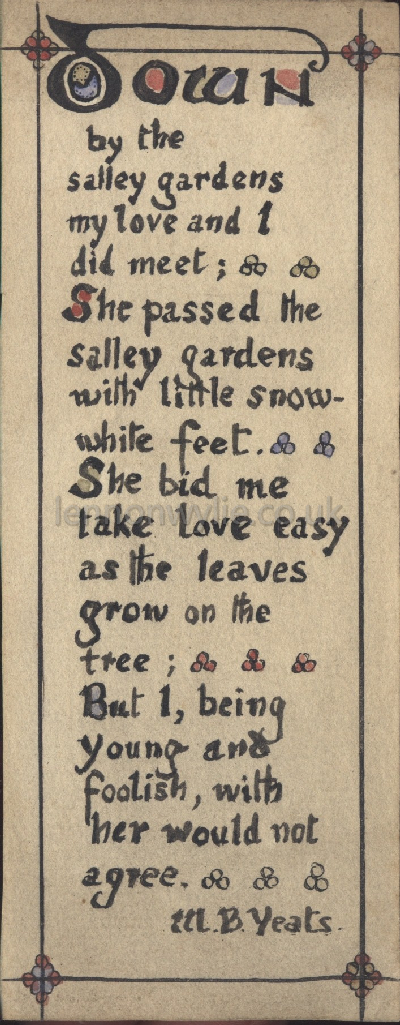 Down
by the
salley gardens
my love and I
did meet;
She passed the
salley gardens
with little snow-
white feet.
She bid me
lennonwylie.co.uk
take love easy
as the leaves
grow on the
tree;
But I, being
young and
foolish, with
her would not
agree.
W. B. Yeats.